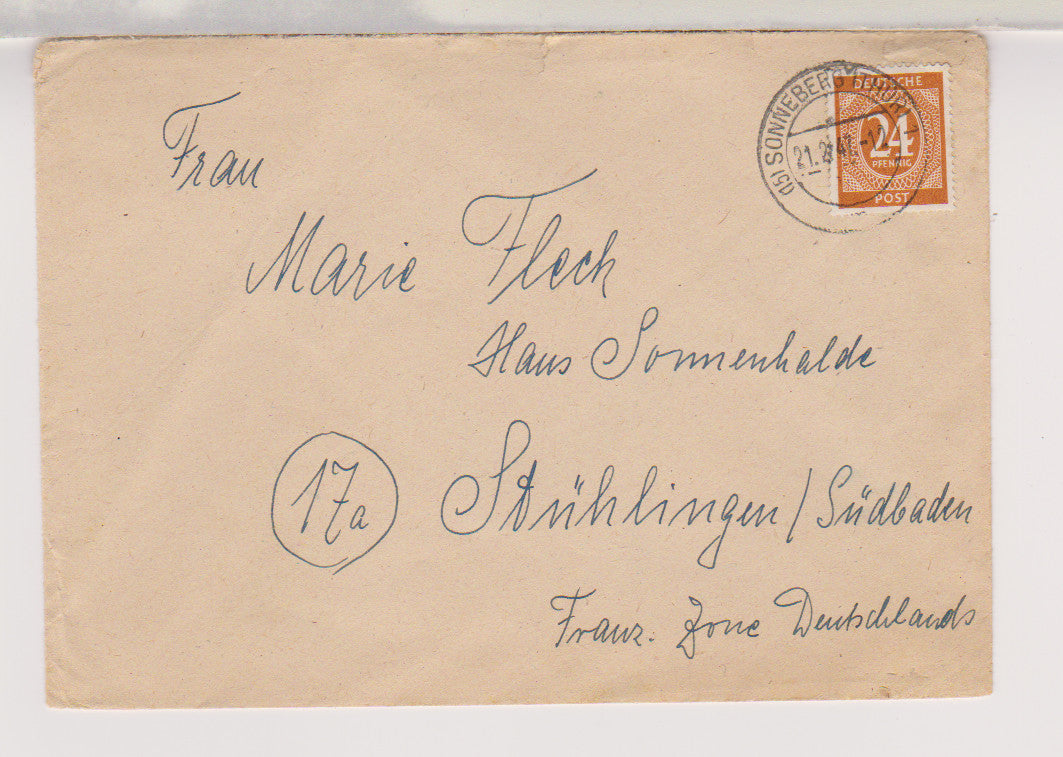 (15) SONNEBERG (THÜR)
DEUTSCHE
24
PFENNIG
POST
Frau
Marie Flech
Haus Sonnenhalde
17a Stühlingen / Südbaden
Franz. Zone Deutschlands